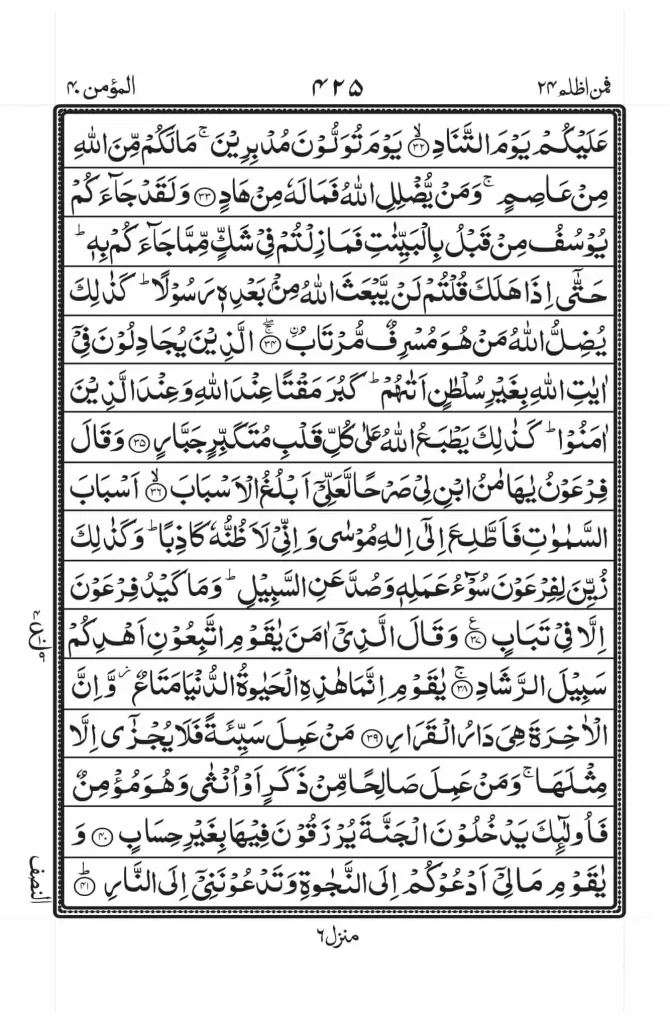 فمن اظلم ۲۴
۴۲۵
المؤمن ۴۰
عَلَیْكُمْ یَوْمَ التَّنَادِ ۙ﴿۳۲﴾ یَوْمَ تُوَلُّوْنَ مُدْبِرِیْنَ ۚ مَا لَكُمْ مِّنَ اللّٰهِ
مِنْ عَاصِمٍ ۚ وَمَنْ یُّضْلِلِ اللّٰهُ فَمَا لَهٗ مِنْ هَادٍ ﴿۳۳﴾ وَلَقَدْ جَآءَكُمْ
یُوْسُفُ مِنْ قَبْلُ بِالْبَیِّنٰتِ فَمَا زِلْتُمْ فِیْ شَكٍّ مِّمَّا جَآءَكُمْ بِهٖ ؕ
حَتّٰۤی اِذَا هَلَكَ قُلْتُمْ لَنْ یَّبْعَثَ اللّٰهُ مِنْۢ بَعْدِهٖ رَسُوْلًا ؕ كَذٰلِكَ
یُضِلُّ اللّٰهُ مَنْ هُوَ مُسْرِفٌ مُّرْتَابُۨ ﴿۳۴﴾ الَّذِیْنَ یُجَادِلُوْنَ فِیْۤ
اٰیٰتِ اللّٰهِ بِغَیْرِ سُلْطٰنٍ اَتٰىهُمْ ؕ كَبُرَ مَقْتًا عِنْدَ اللّٰهِ وَعِنْدَ الَّذِیْنَ
اٰمَنُوْا ؕ كَذٰلِكَ یَطْبَعُ اللّٰهُ عَلٰی كُلِّ قَلْبِ مُتَكَبِّرٍ جَبَّارٍ ﴿۳۵﴾ وَقَالَ
فِرْعَوْنُ یٰهَامٰنُ ابْنِ لِیْ صَرْحًا لَّعَلِّیْۤ اَبْلُغُ الْاَسْبَابَ ۙ﴿۳۶﴾ اَسْبَابَ
السَّمٰوٰتِ فَاَطَّلِعَ اِلٰۤی اِلٰهِ مُوْسٰی وَاِنِّیْ لَاَظُنُّهٗ كَاذِبًا ؕ وَكَذٰلِكَ
زُیِّنَ لِفِرْعَوْنَ سُوْٓءُ عَمَلِهٖ وَصُدَّ عَنِ السَّبِیْلِ ؕ وَمَا كَیْدُ فِرْعَوْنَ
اِلَّا فِیْ تَبَابٍ ﴿۳۷﴾ وَقَالَ الَّذِیْۤ اٰمَنَ یٰقَوْمِ اتَّبِعُوْنِ اَهْدِكُمْ
سَبِیْلَ الرَّشَادِ ۚ﴿۳۸﴾ یٰقَوْمِ اِنَّمَا هٰذِهِ الْحَیٰوةُ الدُّنْیَا مَتَاعٌ ؗ وَّاِنَّ
الْاٰخِرَةَ هِیَ دَارُ الْقَرَارِ ﴿۳۹﴾ مَنْ عَمِلَ سَیِّئَةً فَلَا یُجْزٰۤی اِلَّا
مِثْلَهَا ۚ وَمَنْ عَمِلَ صَالِحًا مِّنْ ذَكَرٍ اَوْ اُنْثٰی وَهُوَ مُؤْمِنٌ
فَاُولٰٓىِٕكَ یَدْخُلُوْنَ الْجَنَّةَ یُرْزَقُوْنَ فِیْهَا بِغَیْرِ حِسَابٍ ﴿۴۰﴾ وَ
یٰقَوْمِ مَا لِیْۤ اَدْعُوْكُمْ اِلَی النَّجٰوةِ وَتَدْعُوْنَنِیْۤ اِلَی النَّارِ ؕ﴿۴۱﴾
النصف
منزل ۶